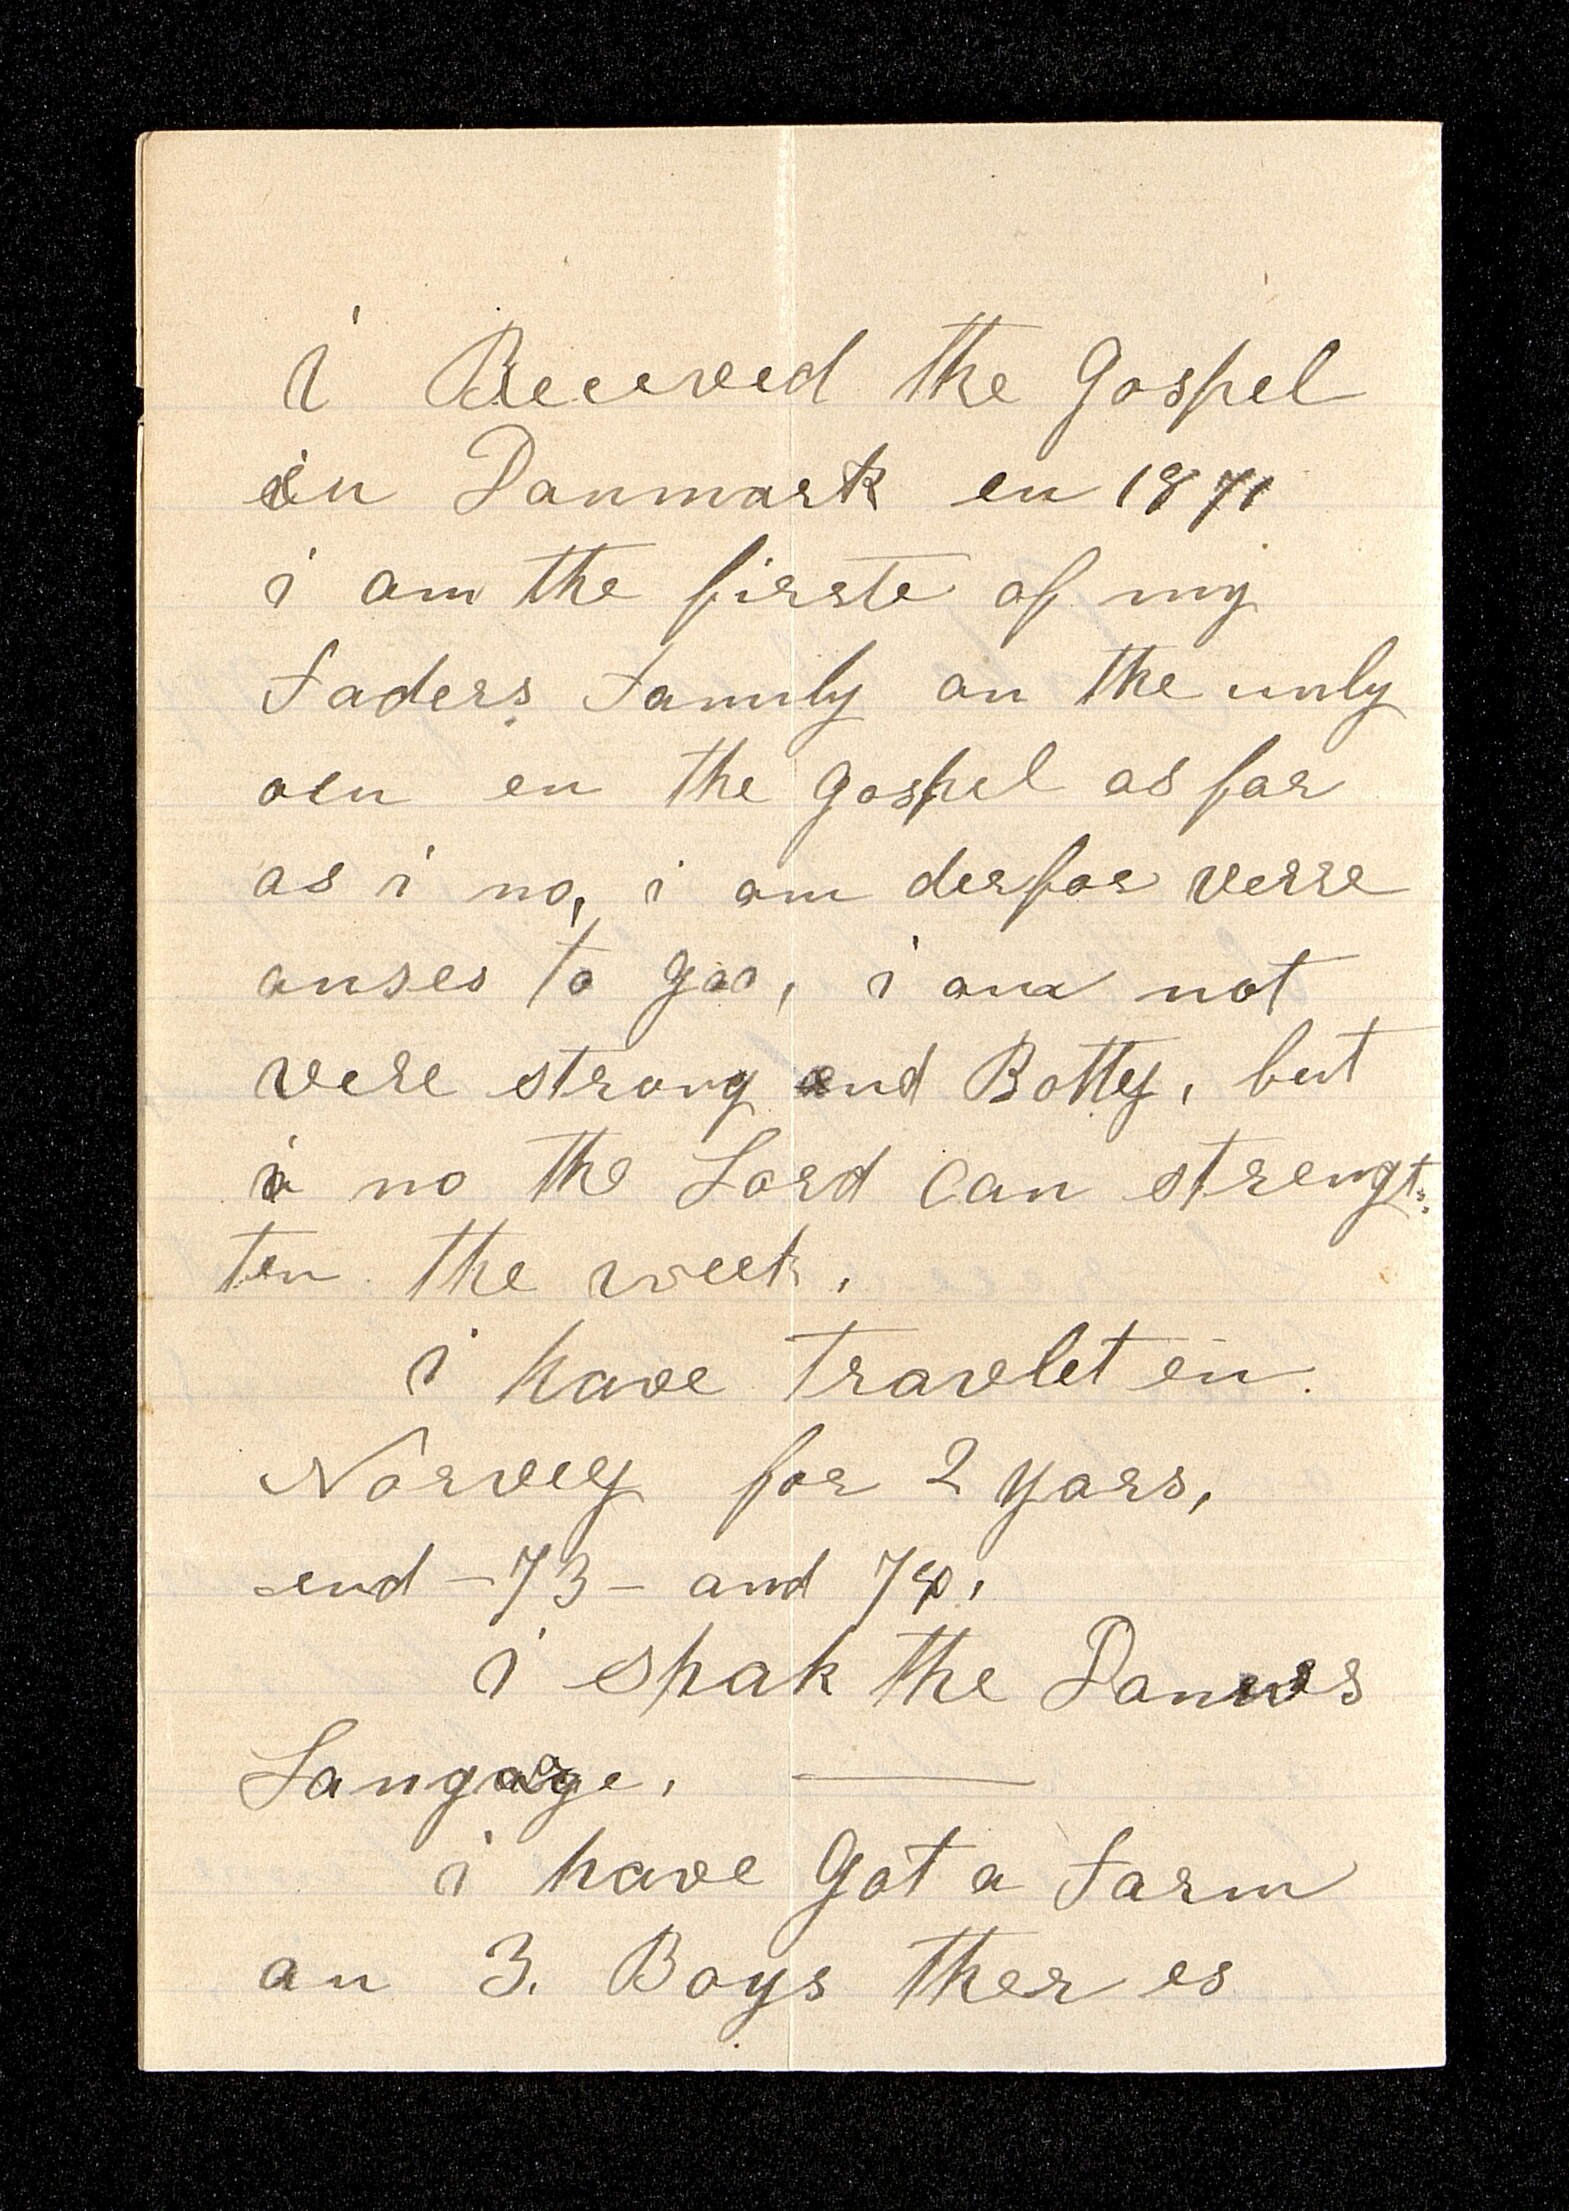 i Received the Gospel
in Danmark en 1871
i am the firste of my
Faders Family an the unly
oen en the Gospel as far
as i no, i am derfor verre
anses to goo, i am not
vere strong end Botty, but
i no the Lord can strengt:
ten the week,
i have travelet en
Norvey for 2 yars,
end -73- and 74,
i spak the
Langage,
i have got a Farm
an 3. Boys ther es